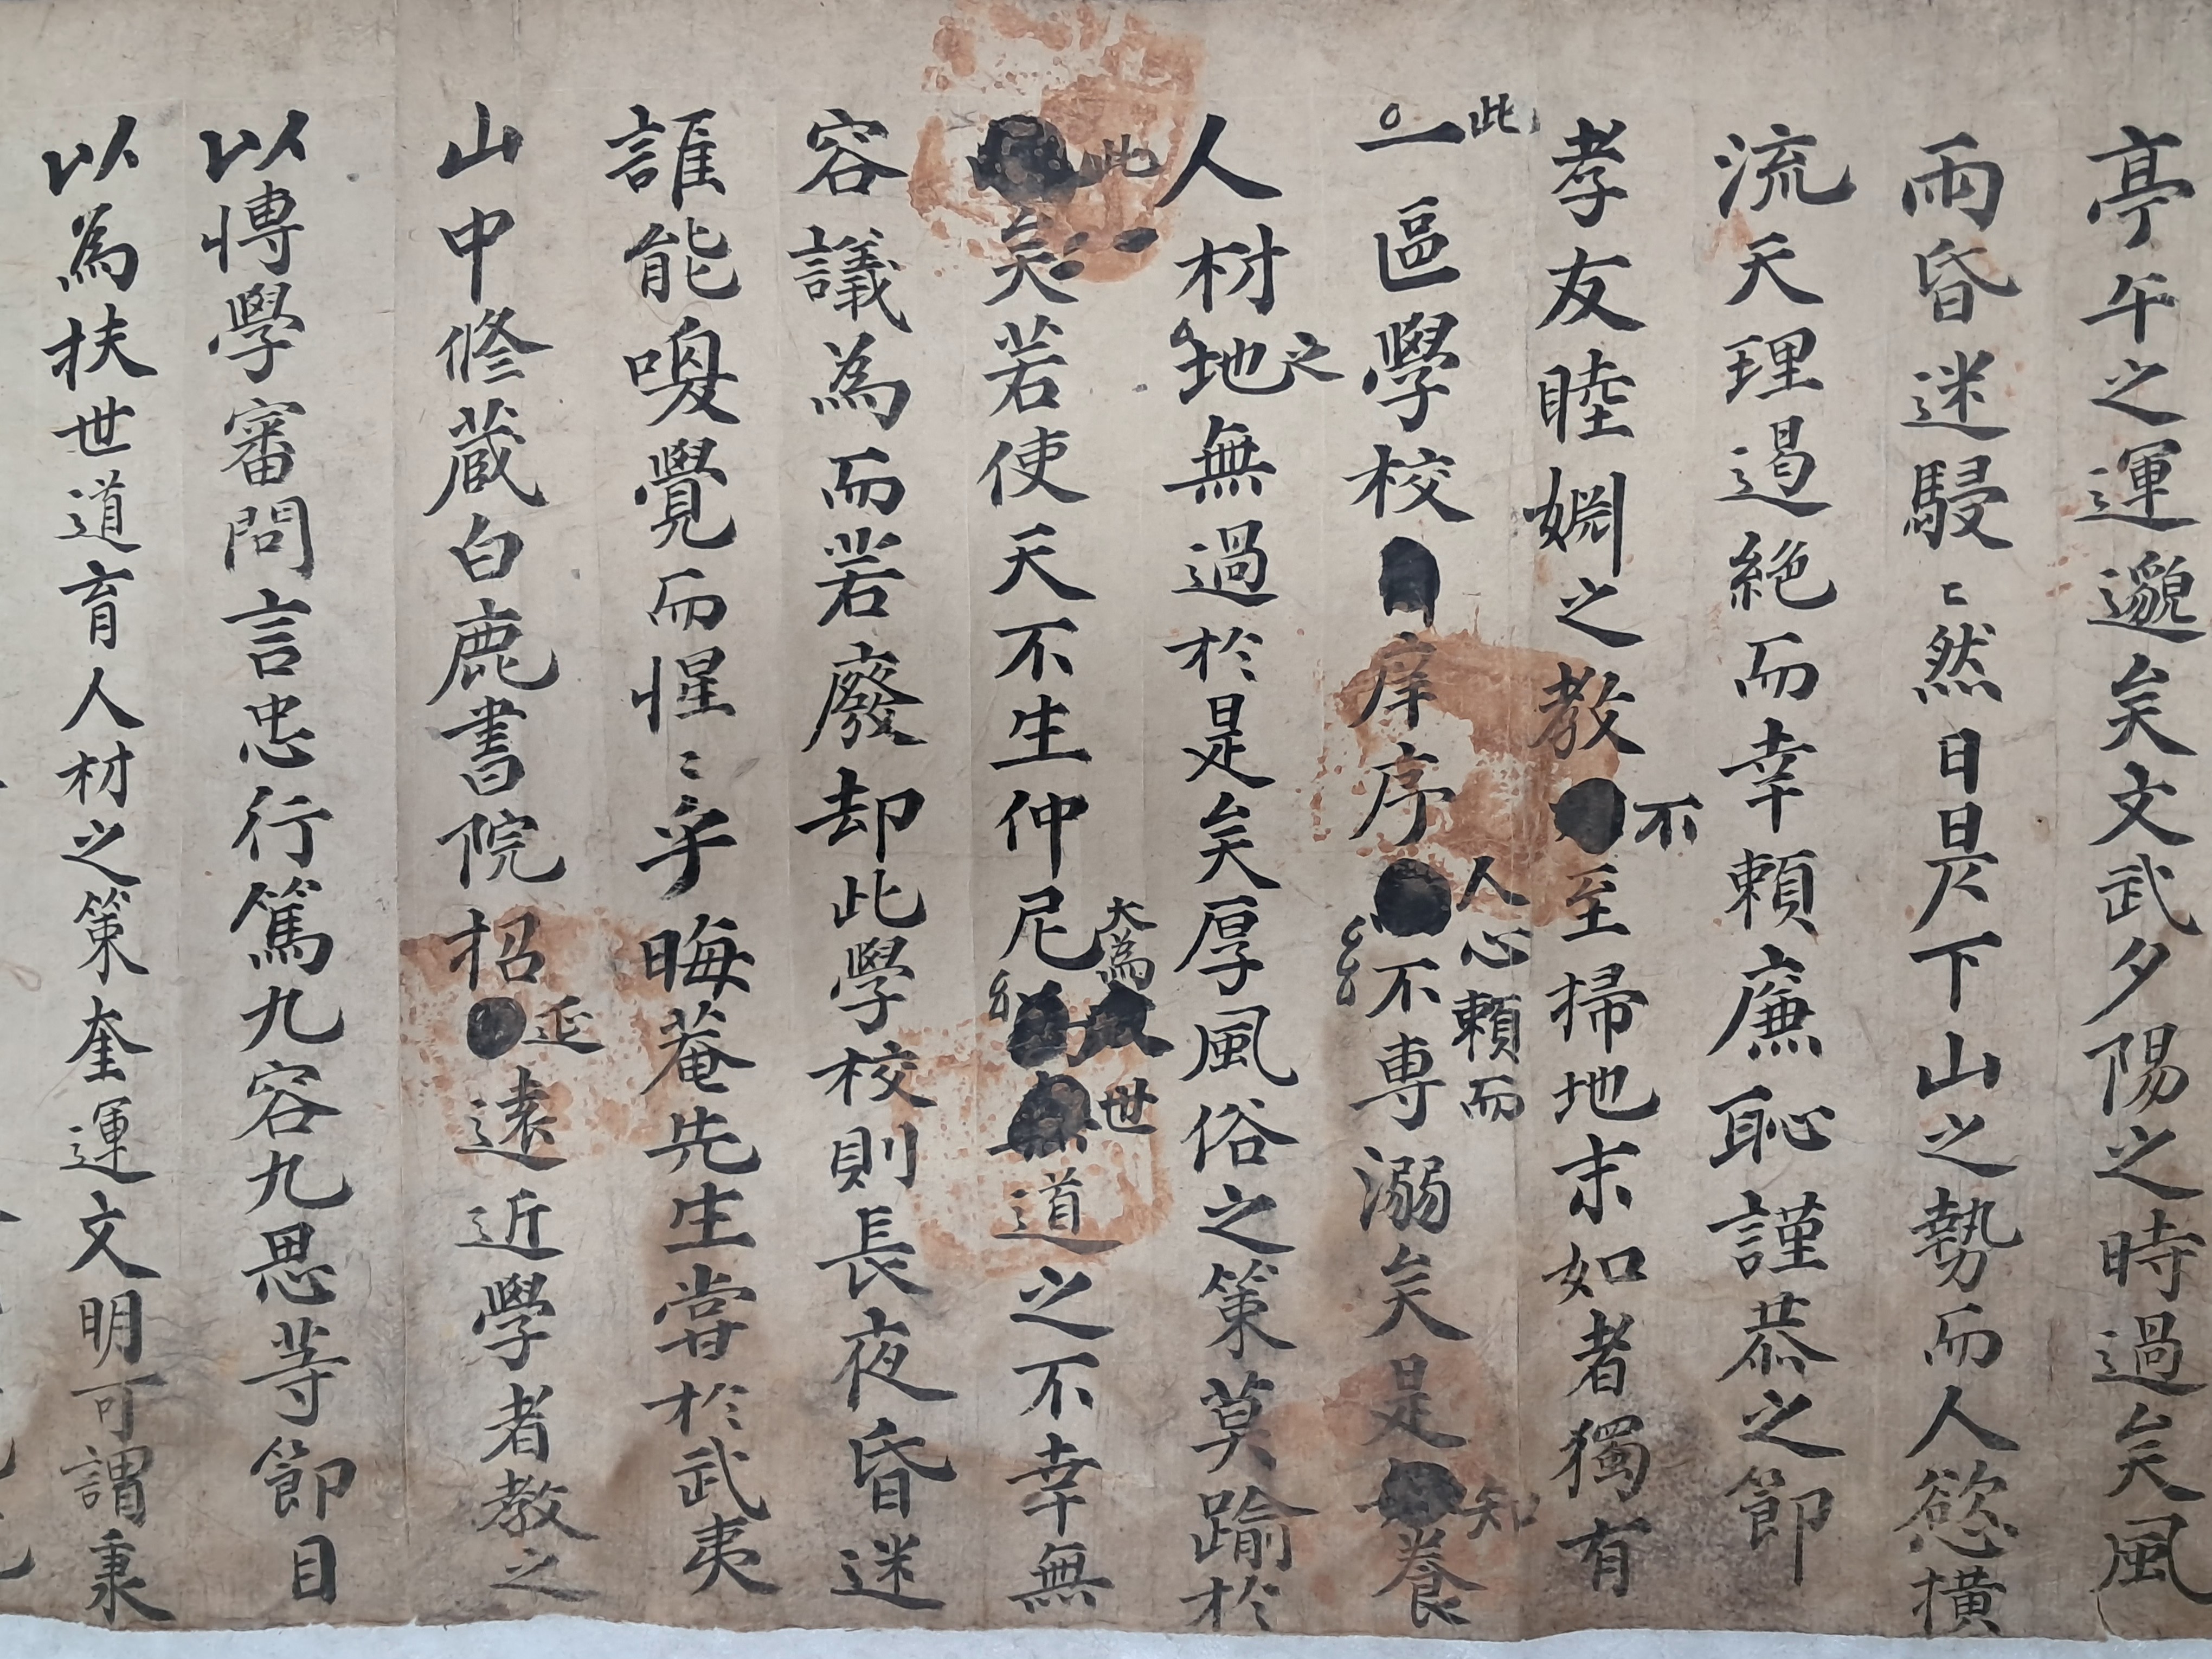 亭午之運邈矣文武夕陽之時過矣風
雨昏迷駸〻然日昃下山之勢而人慾橫
流天理遏絶而幸賴廉恥謹恭之節
孝友睦婣之教不至掃地末如者獨有
此一區學校庠序人心賴而不專溺矣是知養
人材之地無過於是矣厚風俗之策莫踰於
此矣若使天不生仲尼大為世道之不幸無
容議為而若廢却此學校則長夜昏迷
誰能喚覺而惺〻乎晦菴先生嘗於武夷
山中修蔵白鹿書院招延遠近學者教之
以博學審問言忠行篤九容九思等節目
以為扶世道育人材之策奎運文明可謂秉